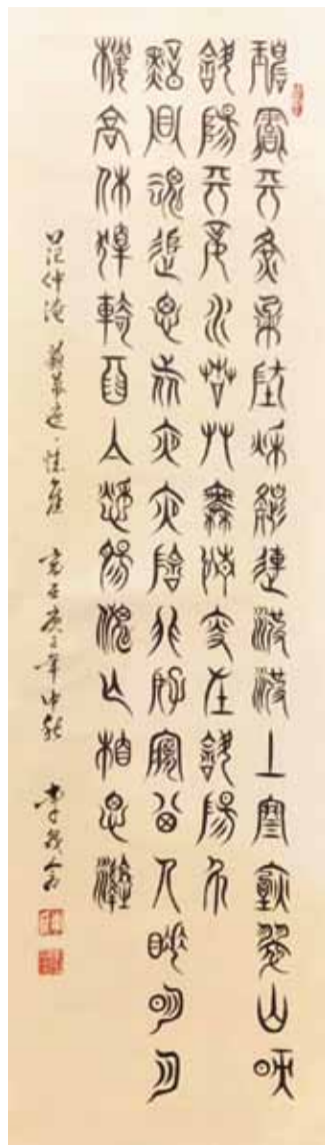 碧雲天黃葉地秋色連波波上寒煙翠山映
斜陽天接水芳草無情更在斜陽外
黯鄉魂追旅思夜夜除非好夢留人睡明月
樓高休獨倚酒入愁腸化作相思淚
范仲淹 蘇幕遮·懷舊 歲在庚子年中秋 李